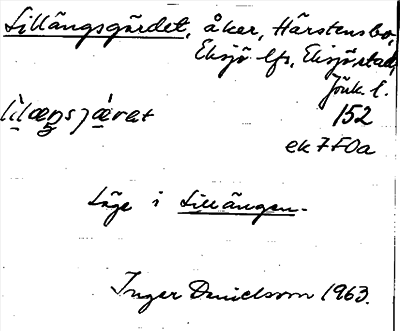 Lillängsgärdet, åker, Härstensbo,
Eksjö lfs, Eksjö stad,
Jönk. l.
152
ek 7F0a
Läge i Lillängen.
Inger Danielsson 1963.